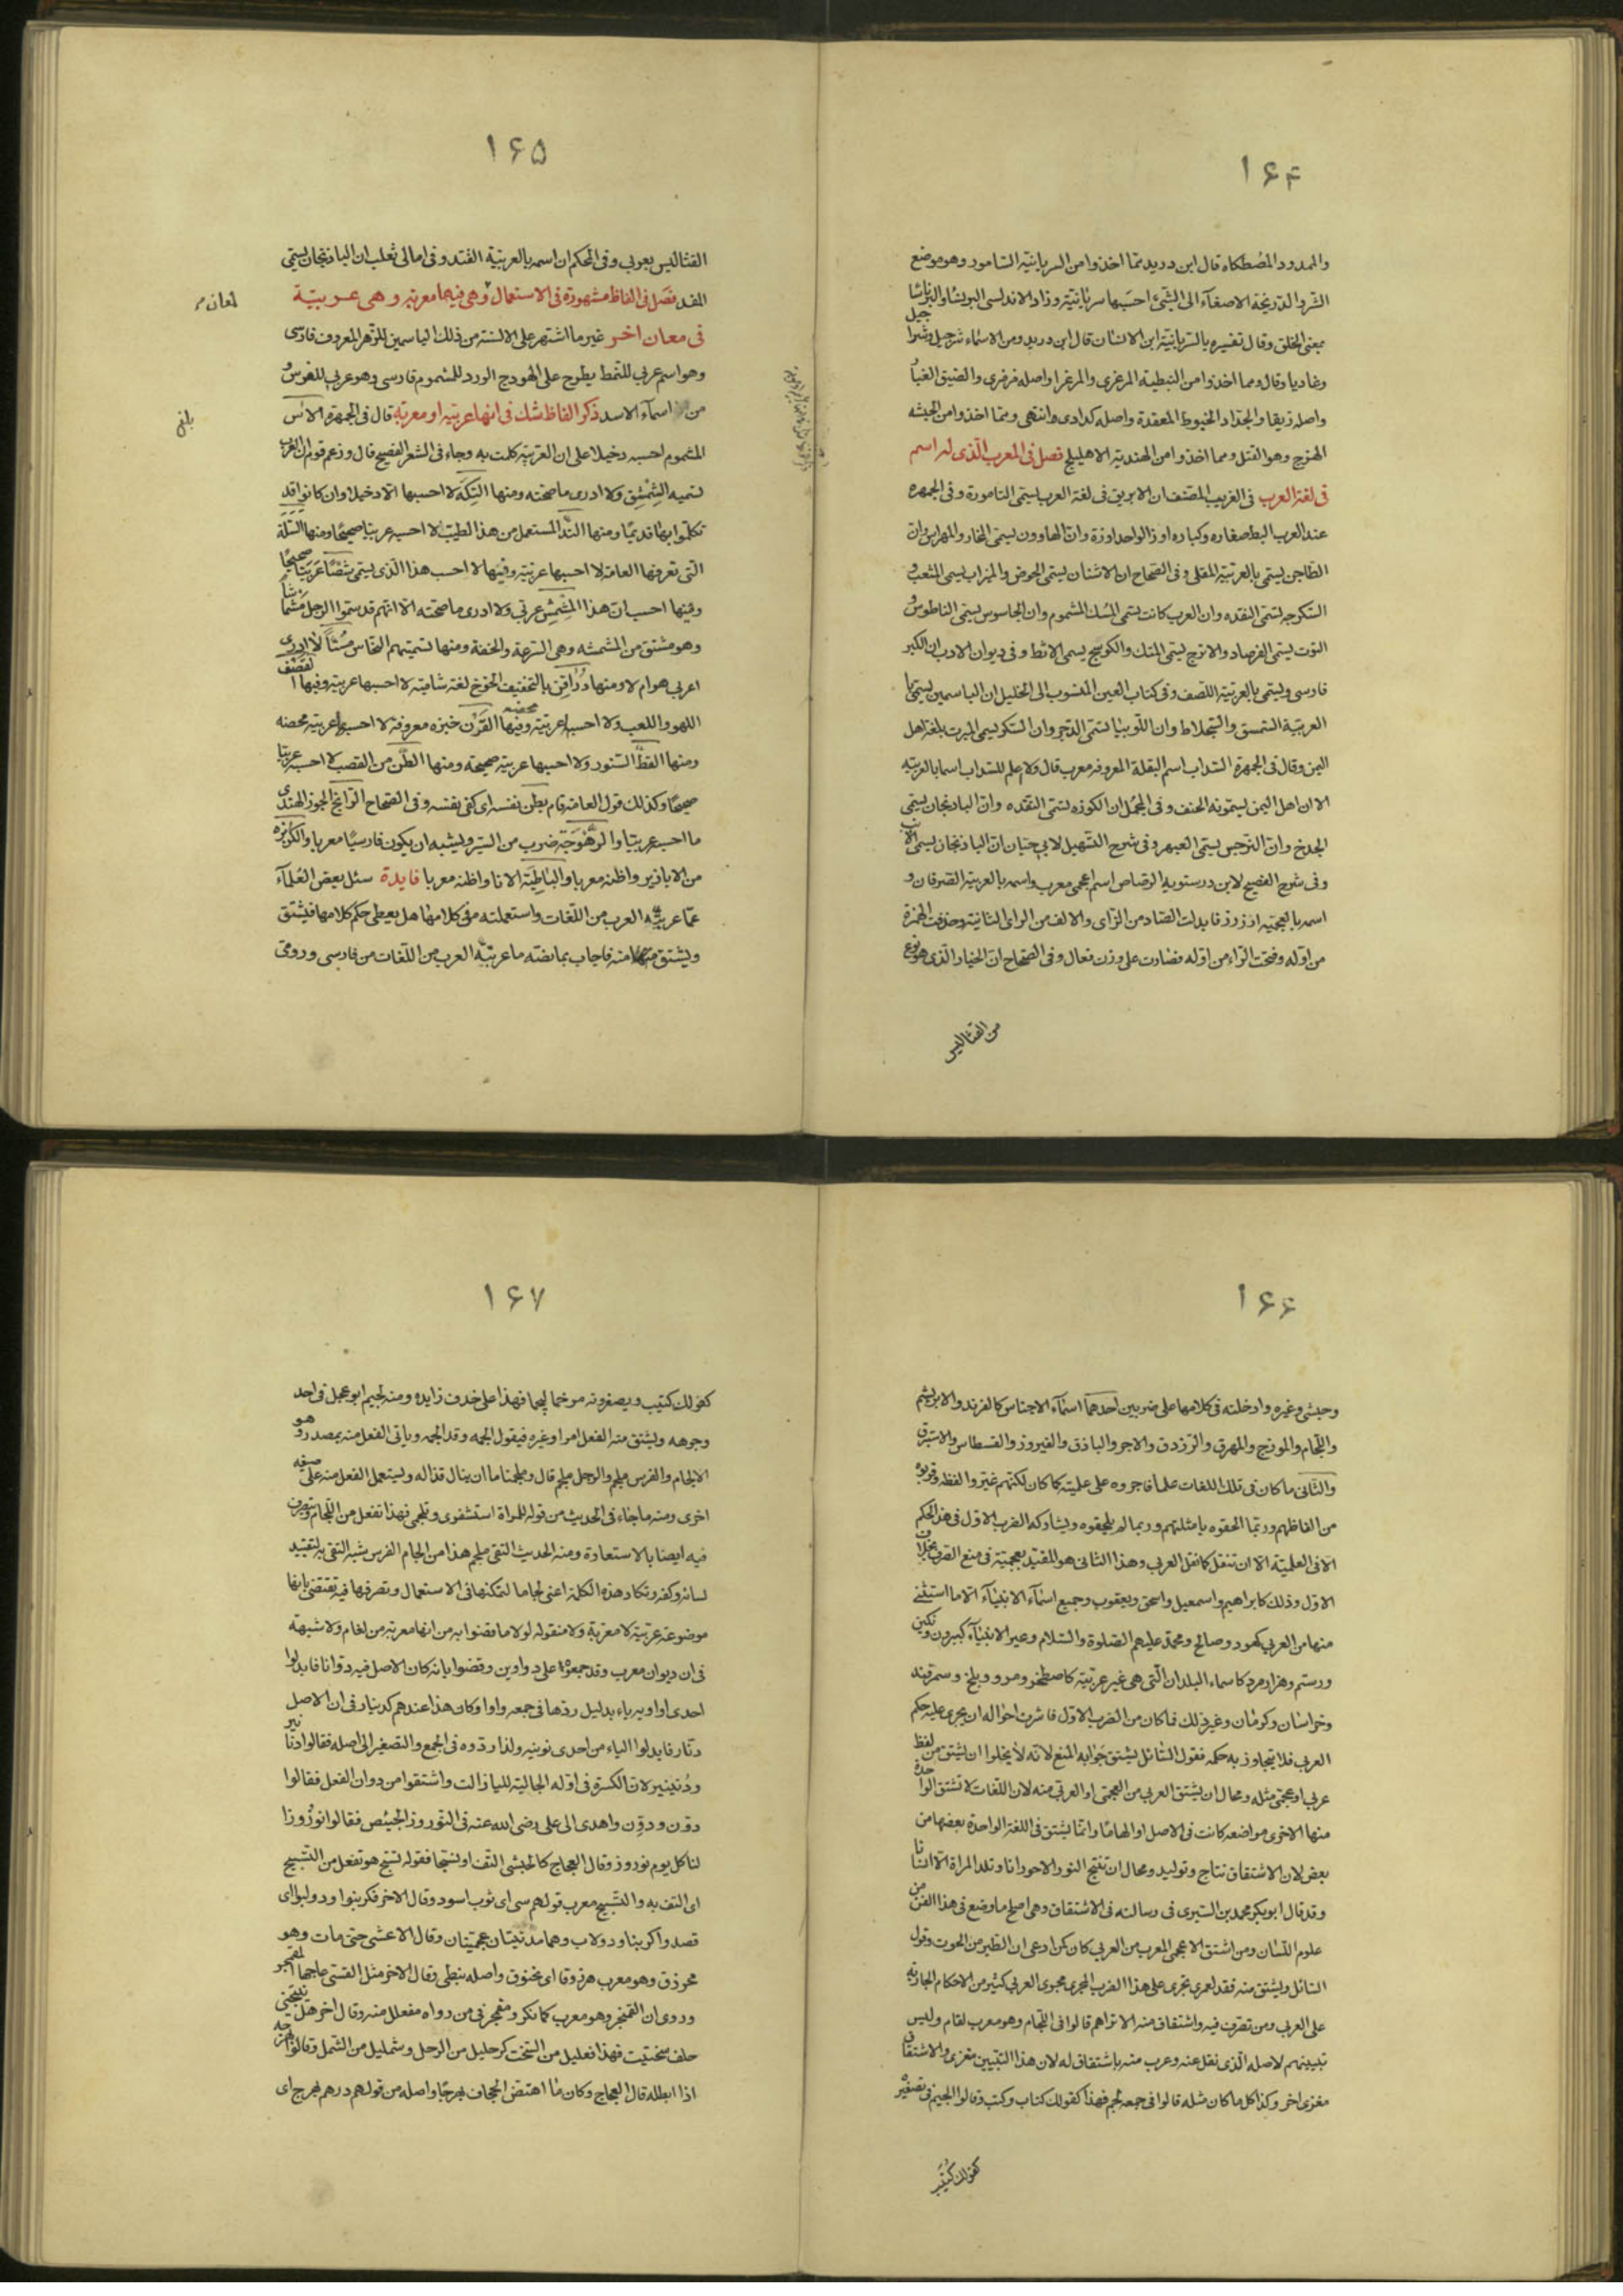 ۱۶۴
والممدود المصطكاه قال ابن دريد مما اخذوا من السريانية التامور وهو موضع
السر والدربخة الاصغاء الى الشئ احسبها سريانية وزاد الاندلسى البرنسا والبرناسا
بمعنى الخلق وقال تفسيره بالسريانية ابن الانسان قال ابن دريد ومن الاسماء شرحبيل وشراحيل
وعاديا وقال ومما اخذوا من النبطية المرعزى والمرعزا واصله مرعزى والصيق الغبار
واصله زيقا والجداد الخيوط المعقدة واصله كدادى وانتهى ومما اخذوا من الحبشه
الهرج وهو القتل ومما اخذوا من الهندية الاهليلج فصل فى المعرب الذى له اسم
فى لغة العرب فى الغريب المصنف ان الابريق فى لغة العرب يسمى التامورة وفى الجمهره
عند العرب البط صغاره وكباره اوز الواحد اوزة وان الهاوون يسمى المنحاز والمهراس وان
الطاجن يسمى بالعربية المقلى وفى الصحاح ان الاشنان يسمى الحوض والميزاب يسمى المثعب و
السكرجه تسمى الثقده وان العرب كانت تسمى المسك المشموم وان الجاسوس يسمى الناطوس و
التوت يسمى الفرصاد والاترج يسمى المتك والكوسج يسمى الاثط وفى ديوان الادب ان الكبر
فارسى ويسمى بالعربية اللصف وفى كتاب العين المنسوب الى الخليل ان الياسمين يسمى با
العربية السمسق والسجلاط وان اللوبيا تسمى الدجر وان السكر يسمى المبرت بلغة اهل
اليمن وقال فى الجمهرة السداب اسم البقلة المعروفه معرب قال ولا اعلم للسداب اسما بالعربيه
الا ان اهل اليمن يسمونه الختف وفى المجمل ان الكوزه تسمى الثقده وان الباذنجان يسمى
الحدج وان النرجس يسمى العبهر وفى شرح التسهيل لابى حيان ان الباذنجان يسمى الانب
وفى شرح الفصيح لابن درستويه الرصاص اسم اعجمى معرب واسمه بالعربية الصرفان و
اسمه بالعجميه ارزرز فابدلت الصاد من الزاى والالف من الراى الثانية وحذفت الهمزة
من اوله وفتحت الراء من اوله فصارت على وزن فعال وفى الصحاح ان الخيار الذى هو نوع
من القثا ليس
۱۶۵
القثا ليس بعربى وفى المحكم ان اسمه بالعربية القثد وفى امالى ثعلب ان الباذنجان يسمى
المغد فصل فى الفاظ مشهورة فى الاستعمال وهى فيها معربه وهى عربية
فى معان اخر غير ما اشتهر على الالسنة من ذلك الياسمين للزهر المعروف فارسى
وهو اسم عربى للنمط يطرح على الهودج الورد للمشموم فارسى وهو عربى للفرس و
من اسماء الاسد ذكر الفاظ شك فى انها عربيه او معربه قال فى الجمهرة الاس
المشموم احسبه دخيلا على ان العرب قد تكلمت به وجاء فى الشعر الفصيح قال وزعم قوم ان العرب
تسميه السمسق ولا ادرى ما صحته ومنها التكة لا احسبها الا دخيلا وان كانوا قد
تكلموا بها قديما ومنها الند المستعمل من هذا الطيب لا احسبه عربيا صحيحا ومنها السلة
التى تعرفها العامة لا احسبها عربيه وفيها لا احسب هذا الذى يسمى شصا عربيا صحيحا
وفيها احسب ان هذا المشمش عربى ولا ادرى ما صحته الا انهم قد سموا الرجل مشماشا
وهو مشتق من المشمشه وهى السرعة والخفة ومنها تسميتهم النحاس مسا لا ادرى
اعربى هو ام لا ومنها دراقن بالتخفيف الخوخ لغة شامية لا احسبها عربيه وفيها القصف
اللهو واللعب ولا احسبها عربية محضه وفيها الفرن خبزه معروفة لا احسبها عربيه محضه
ومنها القط السنور ولا احسبها عربيه صحيحه ومنها الطن من القصب لا احسبه عربيا
صحيحا وكذلك قول العامه قام بطن نفسه اى كفى نفسه وفى الصحاح الرانج الجوز الهندى
ما احسبه عربيا والرهوجة ضرب من السير ويشبه ان يكون فارسيا معربا والكزبره
من الابازير واظنه معربا والباطية الانا واظنه معربا فايدة سئل بعض العلماء
عما عربته العرب من اللغات واستعملته فى كلامها هل يعطى حكم كلامها فيشتق
ويشتق منه فاجاب بما نصه ما عربته العرب من اللغات من فارسى ورومى
۱۶۶
وحبشى وغيره وادخلته فى كلامها على ضربين احدهما اسماء الاجناس كالفرند والابريسم
واللجام والموزج والمهرق والرزدق والاجر والباذق والفيروز والقسطاس والاستبرق
والثانى ما كان فى تلك اللغات علما فاجروه على علميته كما كان لكنهم غيروا لفظه وقربوه
من الفاظهم وربما الحقوه بامثلتهم وربما لم يلحقوه ويشاركه الضرب الاول فى هذا الحكم
لا فى العلمية الا ان تنقل كما نقل العربى وهذا الثانى هو المقيد بعجميته فى منع الصرف بخلاف
الاول وذلك كابراهيم واسمعيل واسحق ويعقوب وجميع اسماء الانبياء الا ما استثنى
منها من العربى كهود وصالح ومحمد عليهم الصلوة والسلام وغير الانبياء كبيرون وتكين
ورستم وهزارمرد كاسماء البلدان التى هى غير عربية كاصطخر ومرو وبلخ وسمرقند
وخراسان وكرمان وغير ذلك فما كان من الضرب الاول فاشرف احواله ان يجرى عليه حكم
العربى فلا يتجاوز به حكمه فقول السائل يشتق جوابه المنع لانه لا يخلوا ان يشتق من لفظ
عربى او عجمى مثله ومحال ان يشتق العربى من العجمى او العربى منه لان اللغات لا تشتق الواحدة
منها من الاخرى مواضعه كانت فى الاصل او الهاما وانما يشتق فى اللغة الواحدة بعضها من
بعض لان الاشتقاق نتاج وتوليد ومحال ان تنتج النور الاحورانا وتلد المراة الا انسانا
وقد قال ابو بكر محمد بن السرى فى رسالته فى الاشتقاق وهى اصلح ما وضع فى هذا الفن من
علوم اللسان ومن اشتق الاعجمى المعرب من العربى كان كمن ادعى ان الطير من الحوت وقول
السائل ويشتق منه فقد لعمرى يجرى على هذا الضرب المجرى مجرى العربى كثير من الاحكام الجاريه
على العربى ومن تصرف فيه واشتقاق منه الا تراهم قالوا فى اللجام وهو معرب لغام وليس
تبيينهم لاصله الذى نقل عنه وعرب منه باشتقاق له لان هذا التبيين مغزى والاشتقاق
مغزى اخر وكذا كل ما كان مثله قالوا فى جمعه لجم فهذا كقولك كتاب وكتب وقالوا لجيم فى تصغيره
كقولك كتيب
۱۶۷
كقولك كتيب ويصغرونه مرخما لجيما فهذا على حذف زايده ومنه لجيم ابو عجل فى احد
وجوهه ويشتق منه الفعل امرا وغيره فيقول الجمه وقد الجمه وياتى الفعل منه بمصدر وهو
الالجام والفرس ملجم والرجل ملجم قال وملجمنا ما ان ينال قذاله ويستعمل الفعل منه على صيغه
اخرى ومنه ما جاء فى الحديث من قوله للمراة استثفرى وتلجمى فهذا تفعل من اللجام وتصرف
فيه ايضا بالاستعارة ومنه الحديث التقى ملجم هذا من الجام الفرس شبه التقى به لتقييد
لسانه وكفه وتكاد هذه الكلمة اعنى لجاما لتمكنها فى الاستعمال وتصرفها فيه تقتضى بانها
موضوعة عربية لا معربة ولا منقوله لولا ما قضوا به من انها معربه من لغام ولا شبهة
فى ان ديوان معرب وقد جمعوه على دواوين وقضوا بانه كان الاصل فيه دوانا فابدلوا
احدى واويه ياء بدليل ردها فى جمعه واوا وكان هذا عندهم كدينار فى ان الاصل
دنار فابدلوا الياء من احدى نونيه ولذا ردوه فى الجمع والتصغير الى اصله فقالوا دنانير
ودنينير لان الكسرة فى اوله الجالبة للياء زالت واشتقوا من ديوان الفعل فقالوا
دون ودون واهدى الى على رضى الله عنه فى النوروز الخبيص فقالوا نوروزا
لنا كل يوم نوروز وقال العجاج كالحبشى التف او تسبجا فقوله تسبج هو تفعل من التسبيج
اى التف به والسبيج معرب قولهم سى اى ثوب اسود وقال الاخر فكرنبوا ودولبوا اى
قصدوا كرنبا ودولاب وهما مدينتان عجميتان وقال الاعشى حتى مات وهو
محرزق وهو معرب هرزوقا اى مخنوق واصله نبطى وقال الاخر مثل القسى عاجها المقمجر
وروى ان القمنجر وهو معرب كمانكر ومقمجر فى من رواه مفعلل منه وقال اخر هل ينجينى
حلف سختيت فهذا فعليل من السخت كزحليل من الزحل وشمليل من الشمل وقالوا بهرجه
اذا ابطله قال العجاج وكان ما اهتض الجحاف بهرجا واصله من قولهم درهم بهرج اى